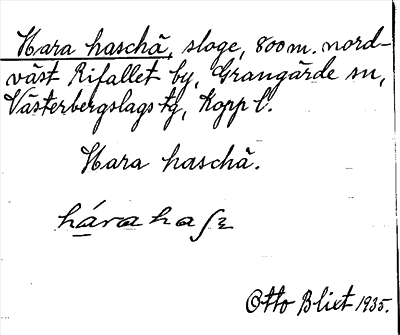 Hara haschä, sloge, 800 m. nord-
väst Rifallet by, Grangärde sn,
Västerbergslags tg, Kopp l.
Hara haschä.
hárahaʃɛ
Otto Blixt 1935.